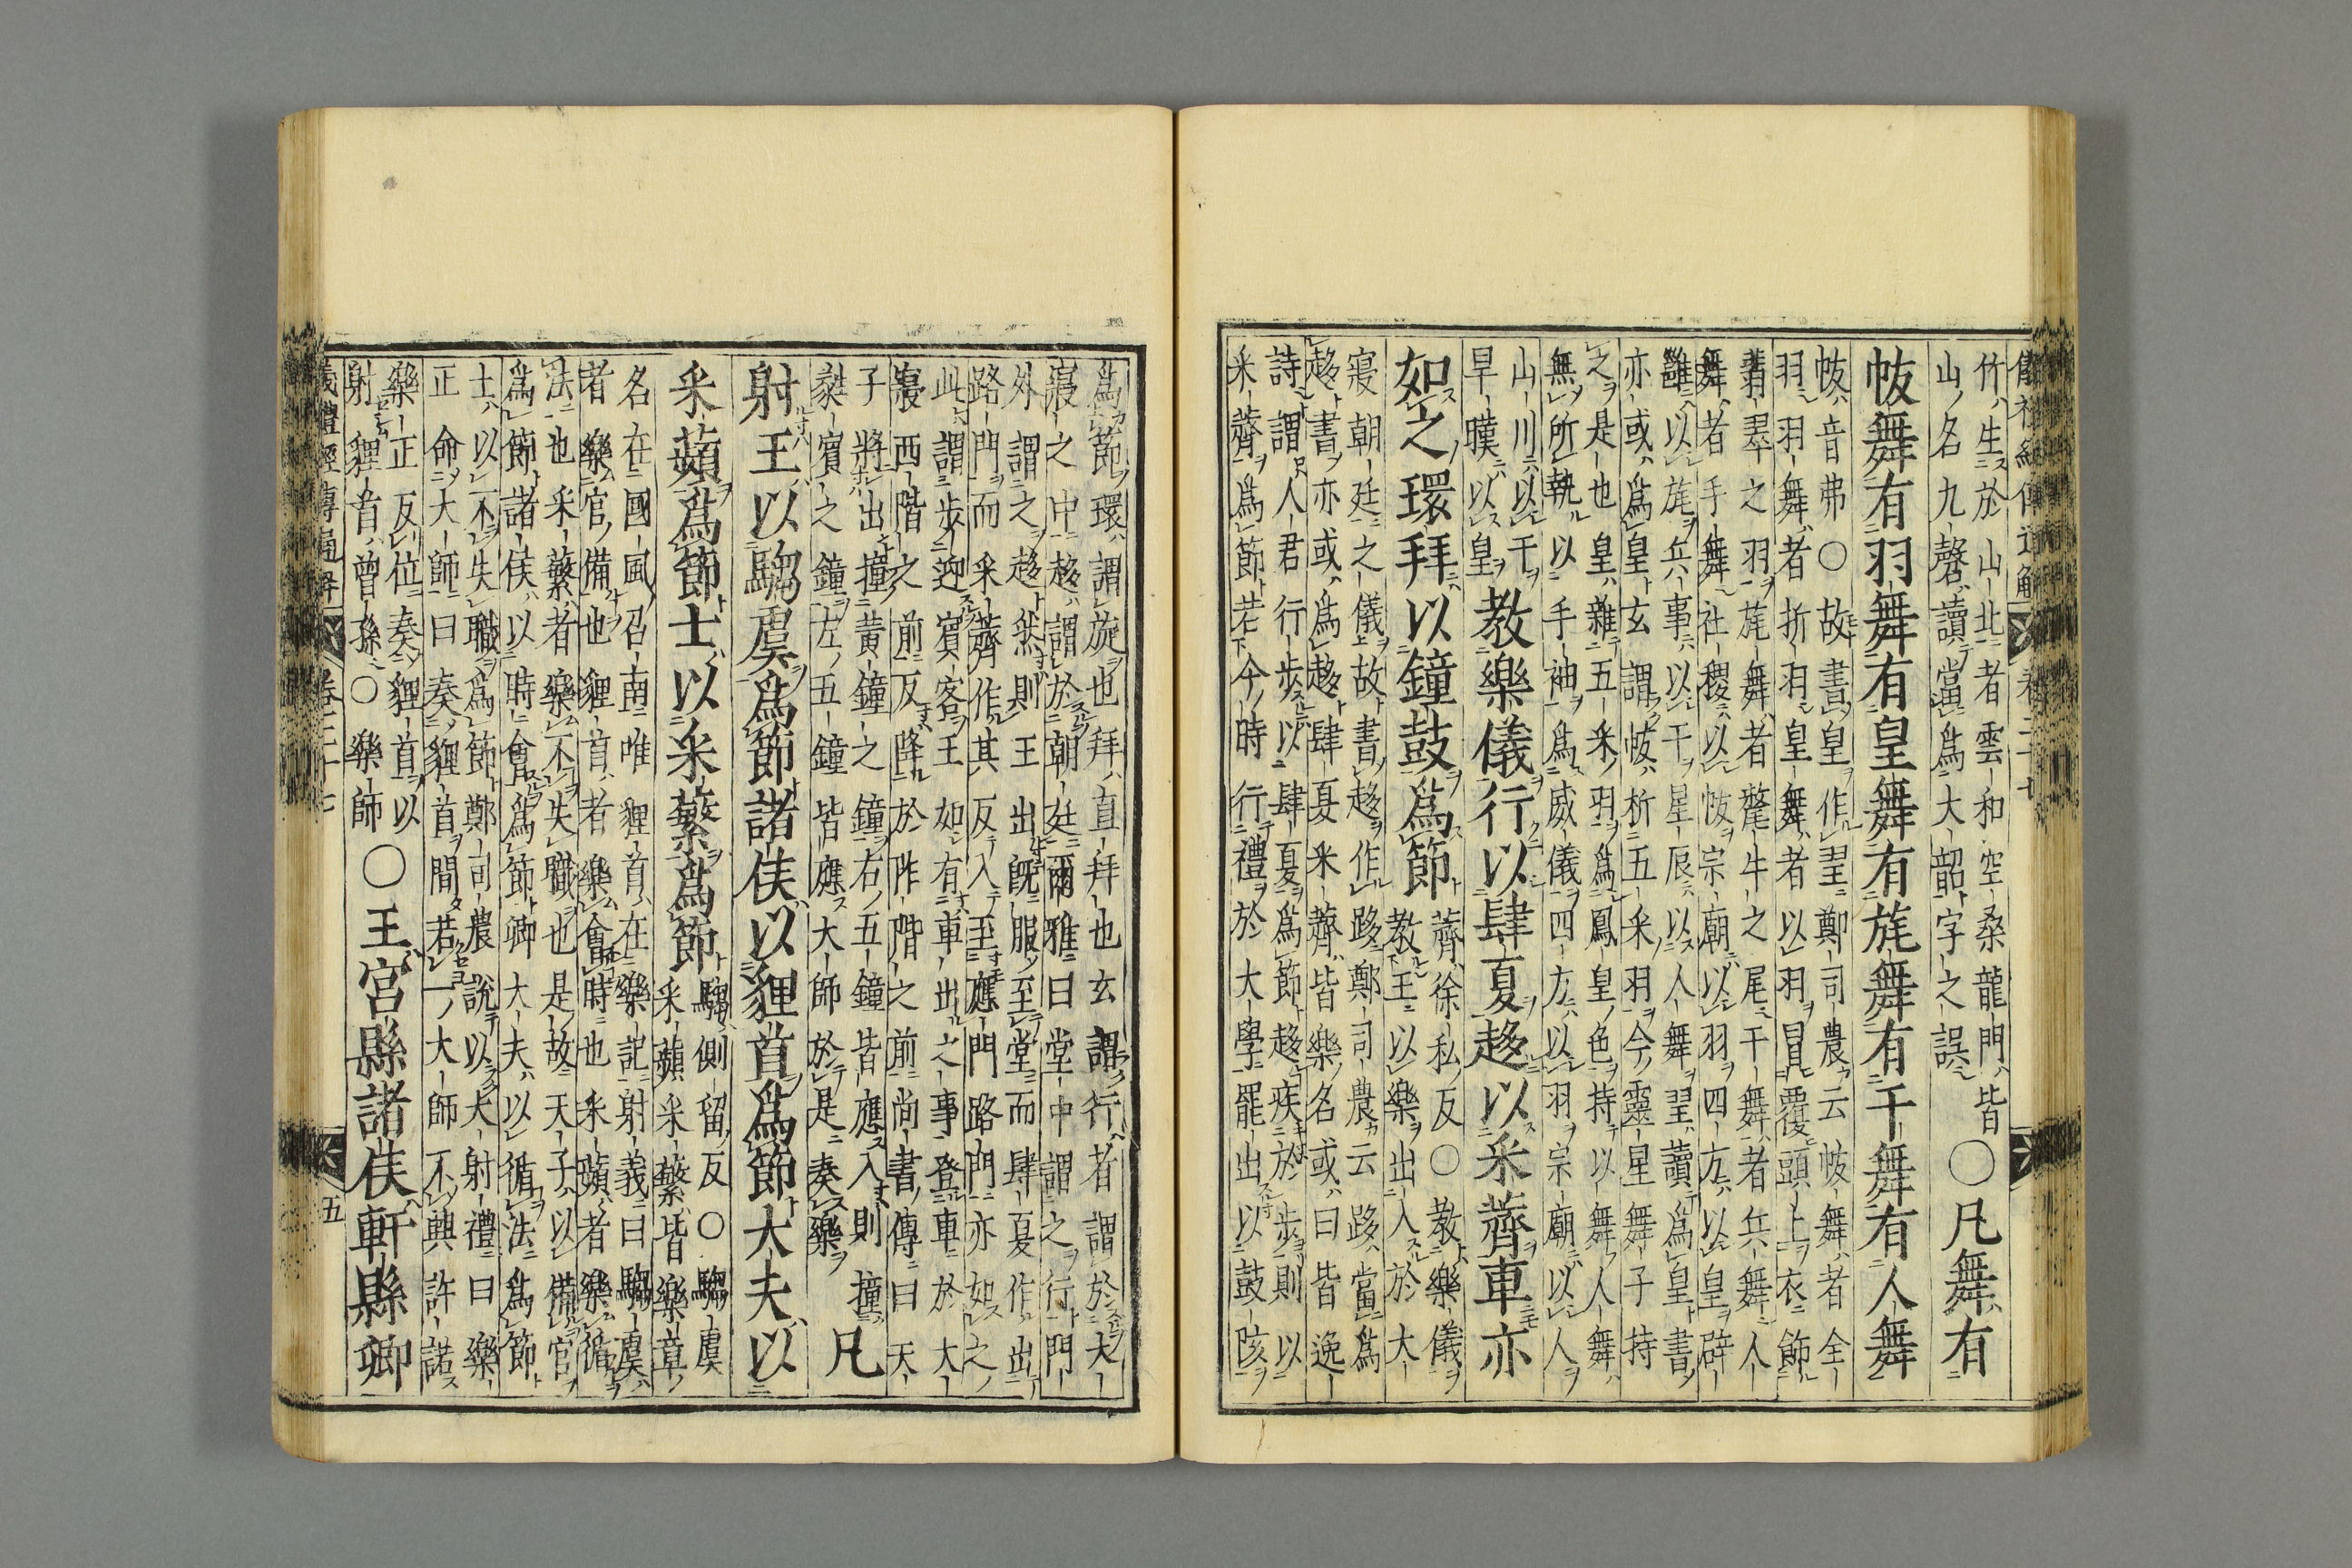 儀禮經傳通解 卷二十七
竹生於山北者雲和空桑龍門皆
山名九磬讀當爲大韶字之誤
○凡舞有
帗舞有羽舞有皇舞有旄舞有干舞有人舞
帗音弗○故書皇作䍿鄭司農云帗舞者全
羽羽舞者析羽皇舞者以羽冒覆頭上衣飾
翡翠之羽旄舞者氂牛之尾干舞者兵舞人
舞者手舞社稷以帗宗廟以羽四方以皇辟
雝以旄兵事以干星辰以人舞䍿讀爲皇書
亦或爲皇玄謂帗析五采羽今靈星舞子持
之是也皇雜五采羽爲鳳皇色持以舞人舞
無所執以手袖爲威儀四方以羽宗廟以人
山川以干
旱暵以皇
教樂儀行以肆夏趍以采薺車亦
如之環拜以鐘鼓爲節
薺徐私反○教樂儀
教王以樂出入於大
寢朝廷之儀故書趍作跢鄭司農云跢當爲
趍書亦或爲趍肆夏采薺皆樂名或曰皆逸
詩謂人君行步以肆夏爲節趍疾於步則以
采薺爲節若今時行禮於大學罷出以鼓陔
爲節環謂旋也拜直拜也玄謂行者謂於大
寢之中趍謂於朝廷爾雅曰堂中謂之行門
外謂之趍然則王出既服至堂而肆夏作出
路門而采薺作其反入至應門路門亦如之
此謂步迎賓客王如有車出之事登車於大
寢西階之前反降於阼階之前尚書傳曰天
子將出撞黄鐘之鐘右五鐘皆應入則撞
蕤賓之鐘左五鐘皆應大師於是奏樂
凡
射王以騶虞爲節諸侯以貍首爲節大夫以
采蘋爲節士以采蘩爲節
騶側留反○騶虞
采蘋采蘩皆樂章
名在國風召南唯貍首在樂記射義曰騶虞
者樂官備也貍首者樂會時也采蘋者樂循
法也采蘩者樂不失職也是故天子以備官
爲節諸侯以時會爲節卿大夫以循法爲節
士以不失職爲節鄭司農說以大射禮曰樂
正命大師曰奏貍首間若一大師不興許諾
樂正反位奏貍首以
射貍音曾孫○樂師
○王宮縣諸侯軒縣卿
儀禮經傳通解 卷二十七 五